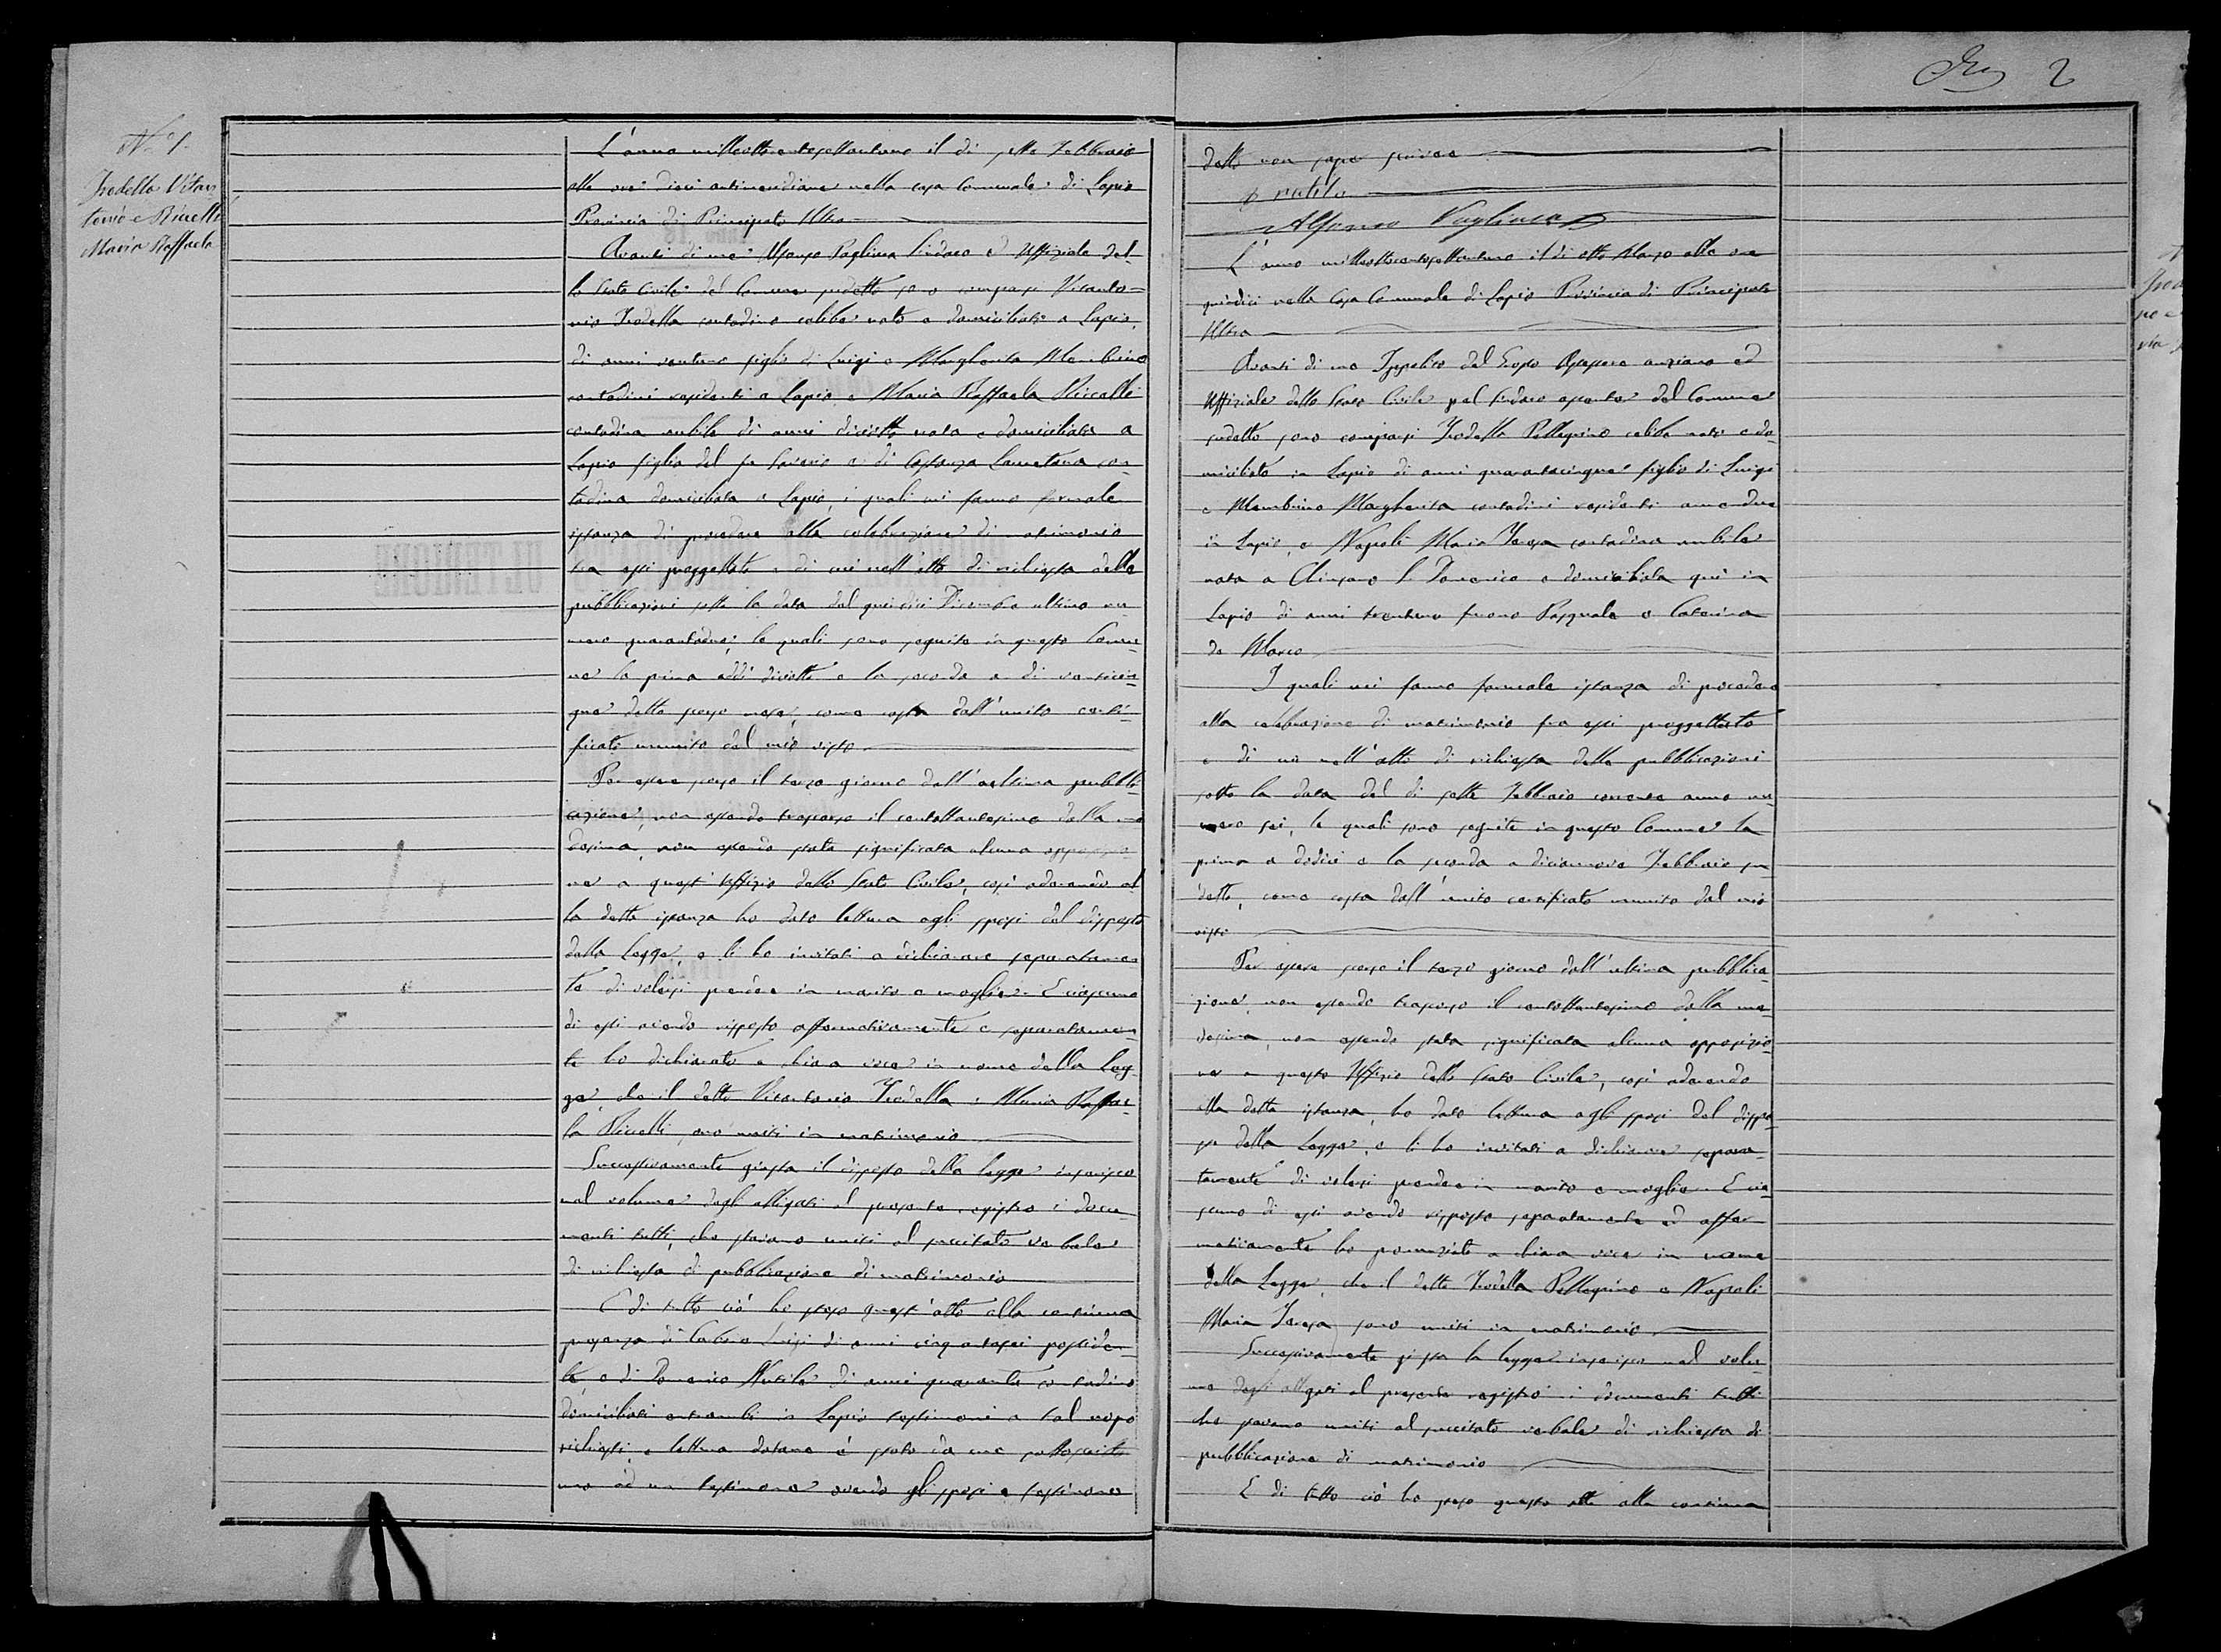 N. 1.
Trodella Vitan
tonio e Riccelli
Maria Raffaela
L'anno milleottocentosettantuno il dì sette Febbraio
alle ore dieci antimeridiane nella casa Comunale di Lapio
Provincia di Principato Ultra
Avanti di me Alfonso Vagliuca Sindaco ed Uffiziale del-
lo Stato Civile del Comune sudetto sono comparsi Vitanto-
nio Trodella contadino celibe nato e domiciliato a Lapio,
di anni ventuno figlio di Luigi e Margherita Mambrino
contadini residenti a Lapio, e Maria Raffaela Riccelli
contadina nubile di anni diciotto nata e domiciliata a
Lapio figlia del fu Saverio e di Costanza Lauretana con-
tadina domiciliata a Lapio, i quali mi fanno formale
istanza di procedere alla celebrazione di matrimonio
tra essi progettato e di cui nell'atto di richiesta delle
pubblicazioni sotto la data del quindici Dicembre ultimo nu-
mero quarantadue; le quali sono seguite in questo Comu-
ne la prima addì diciotto e la seconda a dì venticin-
que detto scorso mese, come costa dall'unito certi-
ficato munito del mio visto
Per essere scorso il terzo giorno dall'ultima pubbli-
cazione, non essendo trascorso il centottantesimo dalla me
desima, non essendo stata significata alcuna opposizio-
ne a quest'Uffizio dello Stato Civile, così aderendo al-
la detta istanza ho dato lettura agli sposi del disposto
della Legge, e li ho invitati a dichiarare separatamen-
te di volersi prendere in marito e moglie. E ciascuno
di essi avendo risposto affermativamente e separatamen-
te ho dichiarato a chiara voce in nome della Leg-
ge, che il detto Vitantonio Trodella e Maria Raffae-
la Riccelli, sono uniti in matrimonio
Successivamente giusta il disposto della legge inserisco
nel volume degli allegati al presente registro i docu-
menti tutti, che stavano uniti al succitato verbale
di richiesta di pubblicazione di matrimonio
E di tutto ciò ho steso quest'atto alla continua
presenza di Luigi di anni cinquantasei possiden-
te e di Domenico di anni quaranta contadino
domiciliati entrambi in Lapio testimoni a tal uopo
richiesti, e lettura datane è stato da me sottoscritto
uno ed un testimone avendo gli sposi e testimone
2
detto non saper scrivere
Alfonso Vagliuca
L'anno milleottocentosettantuno il dì otto Marzo alle ore
quindici nella Casa Comunale di Lapio Provincia di Principato
Ultra
Avanti di me Ippolito del Assessore anziano ed
Uffiziale dello Stato Civile pel Sindaco assente del Comune
sudetto, sono comparsi Trodella Pellegrino celibe nato e do-
miciliato in Lapio di anni quarantacinque figlio di Luigi
e Mambrino Margherita contadini residenti amendue
in Lapio, e Napoli Maria Teresa contadina nubile
nata a Chiusano S. Domenico e domiciliata quì in
Lapio di anni trentuno furono Pasquale e Caterina
de Marco
I quali mi fanno formale istanza di procedere
alla celebrazione di matrimonio fra essi progettato
e di cui nell'atto di richiesta delle pubblicazioni
sotto la data del dì sette Febbraio corrente anno nu-
mero sei, le quali sono seguite in questo Comune la
prima a dodici e la seconda a diciannove Febbraio su
detto, come costa dall'unito certificato munito del mio
visto
Per essere scorso il terzo giorno dall'ultima pubblica-
zione, non essendo trascorso il centottantesimo dalla me-
desima, non essendo stata significata alcuna opposizio-
ne a questo Uffizio dello Stato Civile, così aderendo
alla detta istanza, ho dato lettura agli sposi del dispo
sto della Legge, e li ho invitati a dichiarare separa-
tamente di volersi prendere in marito e moglie. E cia-
scuno di essi avendo risposto separatamente ed affer-
mativamente ho pronunziato a chiara voce in nome
della Legge, che il detto Trodella Pellegrino e Napoli
Maria Teresa sono uniti in matrimonio
Successivamente giusta la legge inserisco nel volu-
me degli allegati al presente registro i documenti tutti
che stavano uniti al succitato verbale di richiesta di
pubblicazione di matrimonio
E di tutto ciò ho steso questo atto alla continua